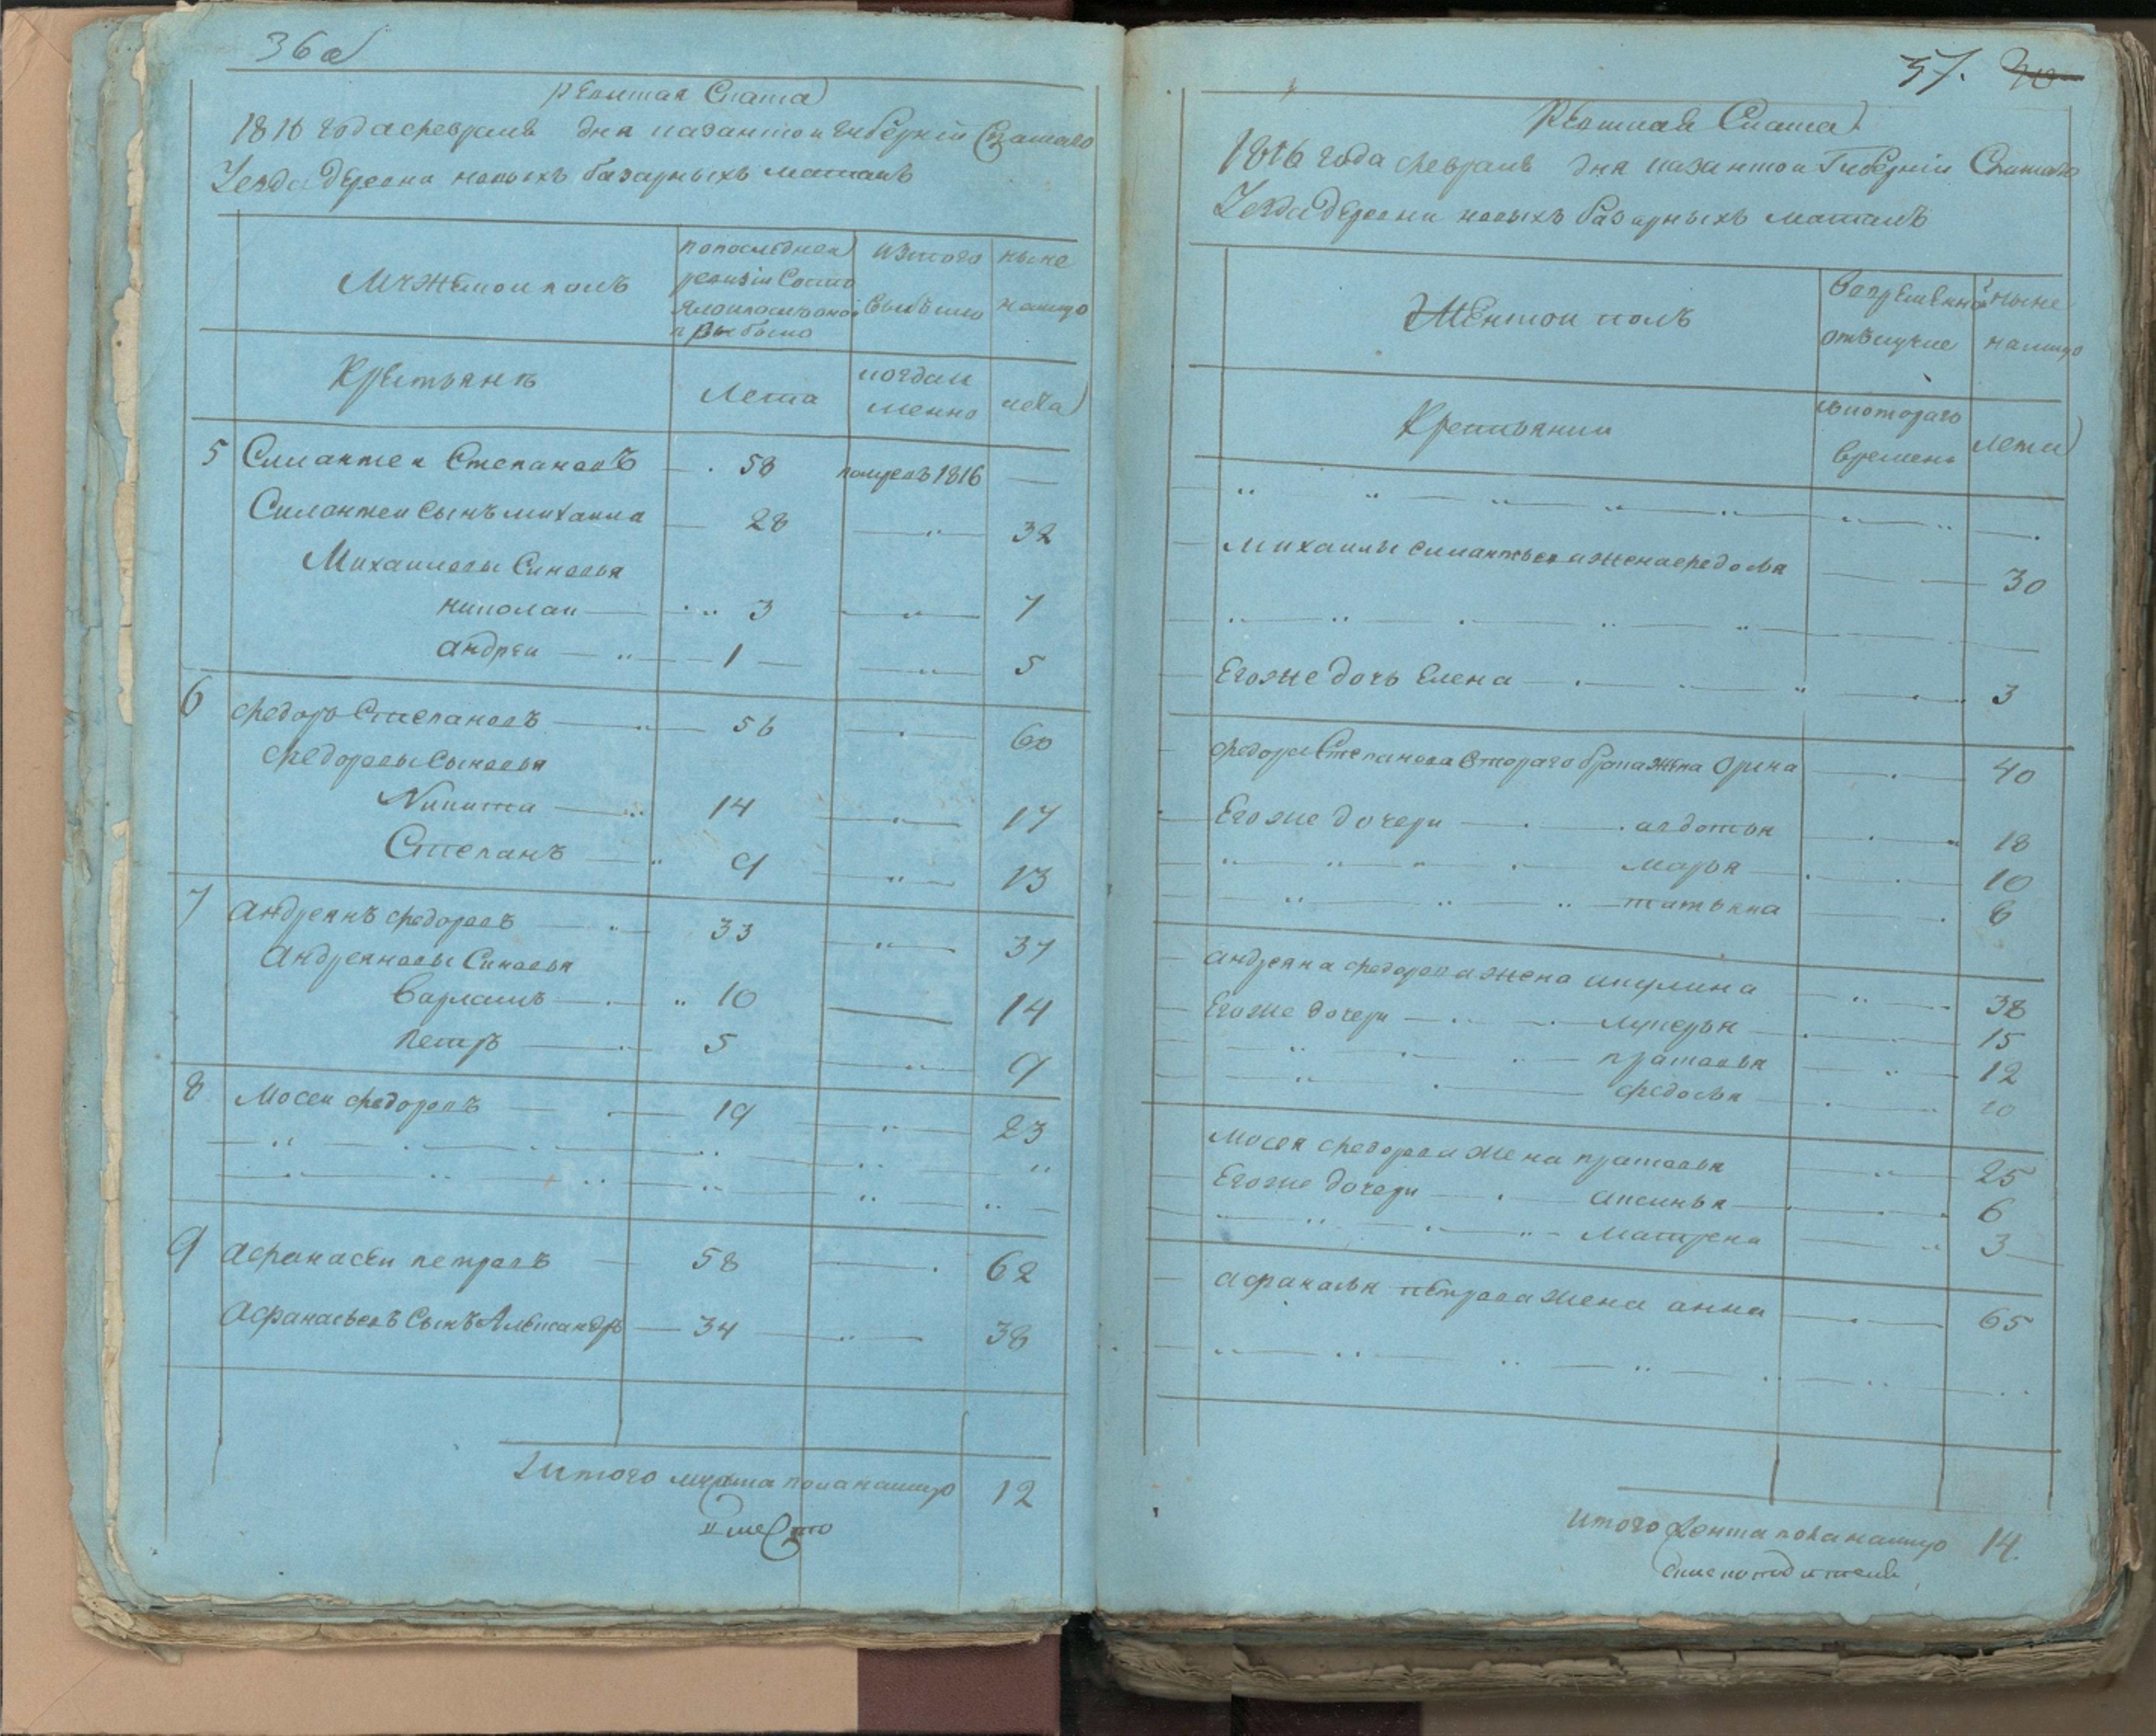 36 об
Ревижская Скаска
1816 года февраля дня казанской губернiи Спаскаго
Уезда деревни новыхъ базарныхъ матакъ
Мужескои полъ
по последнеи
ревизiи состо
яло и после оной
прибыло
изтого
выбыло
ныне
налицо
Крестьянъ
Лета
когдаи
менно
лета
5 Силантеи Степановъ 58 померъ 1816
Силантеи сынъ михаила 28 32
Михаиловы Синовья
николаи 3 7
андреи 1 5
6 федоръ Степановъ 56 60
федоровы сыновья
Никита 14 17
Степанъ 9 13
7 андреянъ федоровъ 33 37
Андреяновы Синовья
варламъ 10 14
петръ 5 9
8 Мосеи федоровъ 19 23
9 афанасеи петровъ 58 62
афанасьевъ сынъ Александръ 34 38
Итого мужеска пола налицо 12
37.
Ревижская Скаска
1816 года февраля дня казанской Губернiи Спаскаго
Уезда деревни новыхъ базарныхъ матакъ
Женскои полъ
вовременной
отълучке
ныне
налицо
Крестьянки
скотораго
времени
лета
Михаилы силантьева жена федосья 30
Егоже дочь Елена 3
федора Степанова втораго брата жена Орина 40
Егоже дочери авдотья 18
марья 10
татьяна 6
андреяна федорова жена акулина 38
Егоже дочери лукерья 15
прасковья 12
федосья 10
Мосея федорова жена прасковья 25
Егоже дочери аксинья 6
Матрена 3
афанасья петрова жена анна 65
Итого женска пола налицо 14.